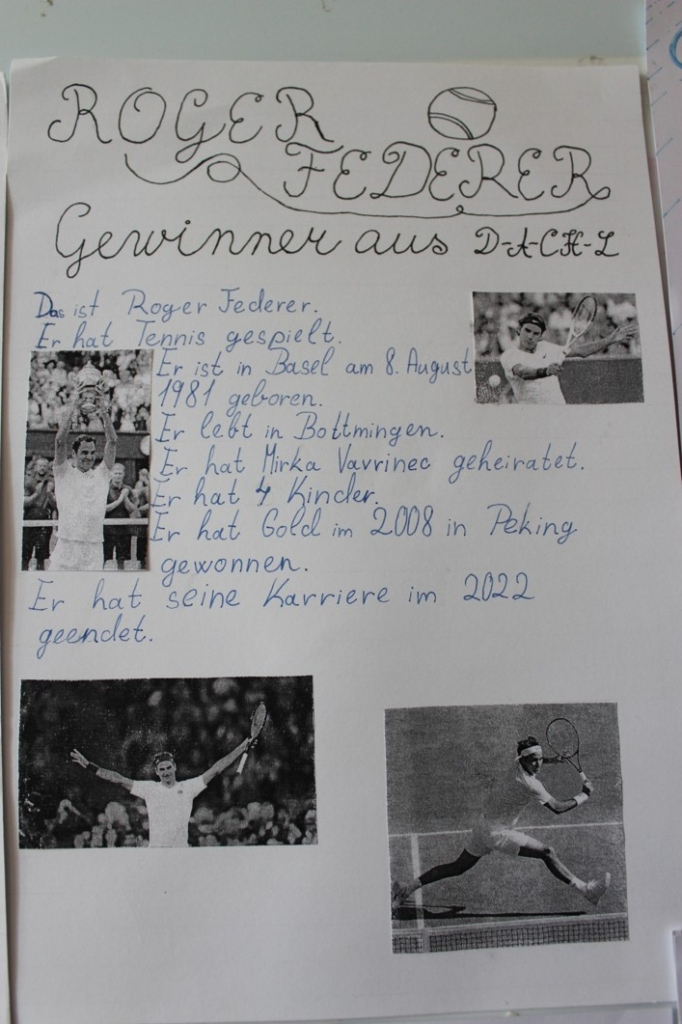 ROGER
FEDERER
Gewinner aus D-A-CH-L
Das ist Roger Federer.
Er hat Tennis gespielt.
Er ist in Basel am 8. August
1981 geboren.
Er lebt in Bottmingen.
Er hat Mirka Vavrinec geheiratet.
Er hat 4 Kinder.
Er hat Gold im 2008 in Peking
gewonnen.
Er hat seine Karriere im 2022
geendet.